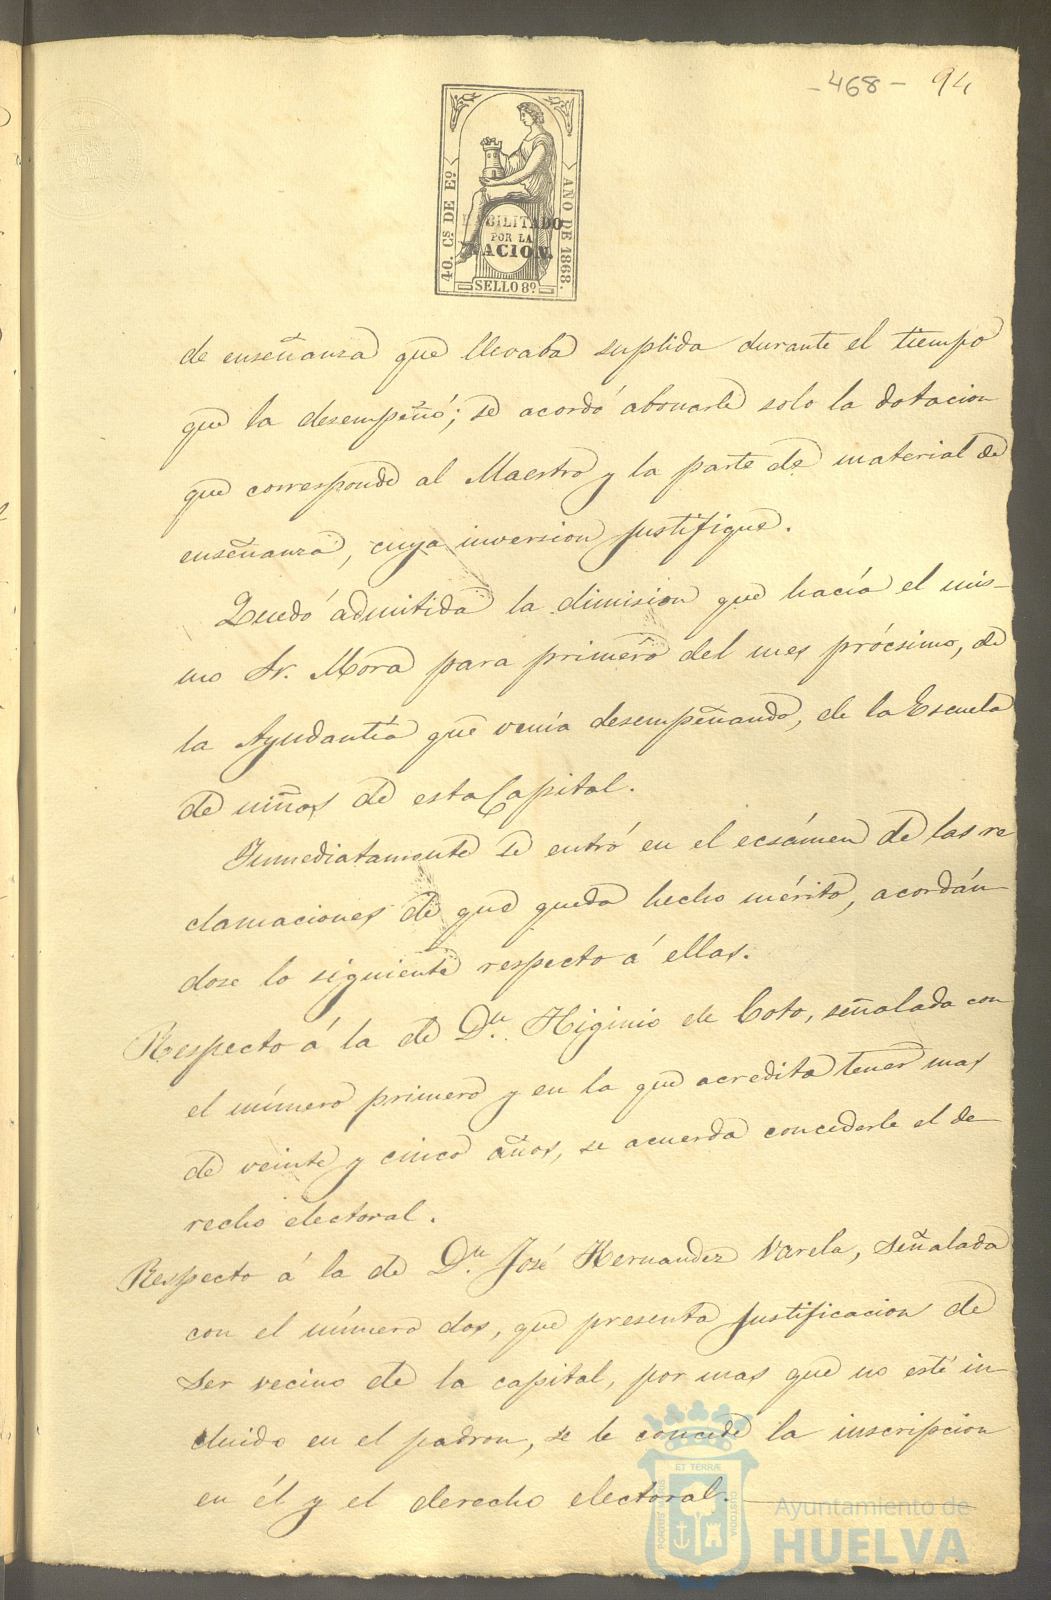 - 468 - 94
40. Cs DE Eo.
AÑO DE 1868.
HABILITADO
POR LA
NACION.
SELLO 8o.
de enseñanza que llevaba suplida durante el tiempo
que la desempeñó; se acordó abonarle solo la dotacion
que corresponde al Maestro y la parte de material de
enseñanza, cuya inversion justifique.
Quedó admitida la dimision que hacía el mis-
mo Sr. Mora para primero del mes prócsimo, de
la Ayudantía que venía desempeñando, de la Escuela
de niños de esta Capital.
Inmediatamente se entró en el ecsámen de las re
clamaciones de que queda hecho mérito, acordán-
dose lo siguiente respecto á ellas.
Respecto á la de Dn. Higinio de Coto, señalada con
el número primero y en la que acredita tener mas
de veinte y cinco años, se acuerda concederle el de-
recho electoral.
Respecto á la de Dn. José Hernandez Varela, señalada
con el número dos, que presenta justificacion de
ser vecino de la capital, por mas que no esté in
cluido en el padron, se le concede la inscripcion
en él y el derecho electoral.
ET TERRÆ
PORTUS MARIS
CUSTODIA
Ayuntamiento de
HUELVA